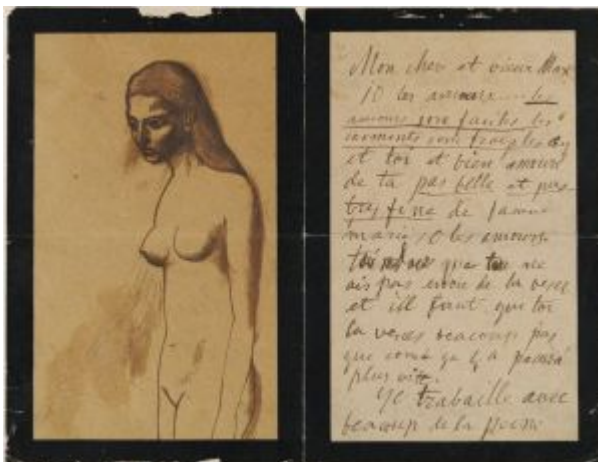 Mon cher et vieux Max
10 les amours..... les
amours sont faciles les
moments sont
et toi et bien amoure
de ta pas belle et pas
tres fine de famme
marie 10 les amours
que tu ne
ais pas de la vere
et ill faut que toi
la veres beacoup pas
que come ça y a
plus vite.
Ye trabaille avec
beacoup de la peine